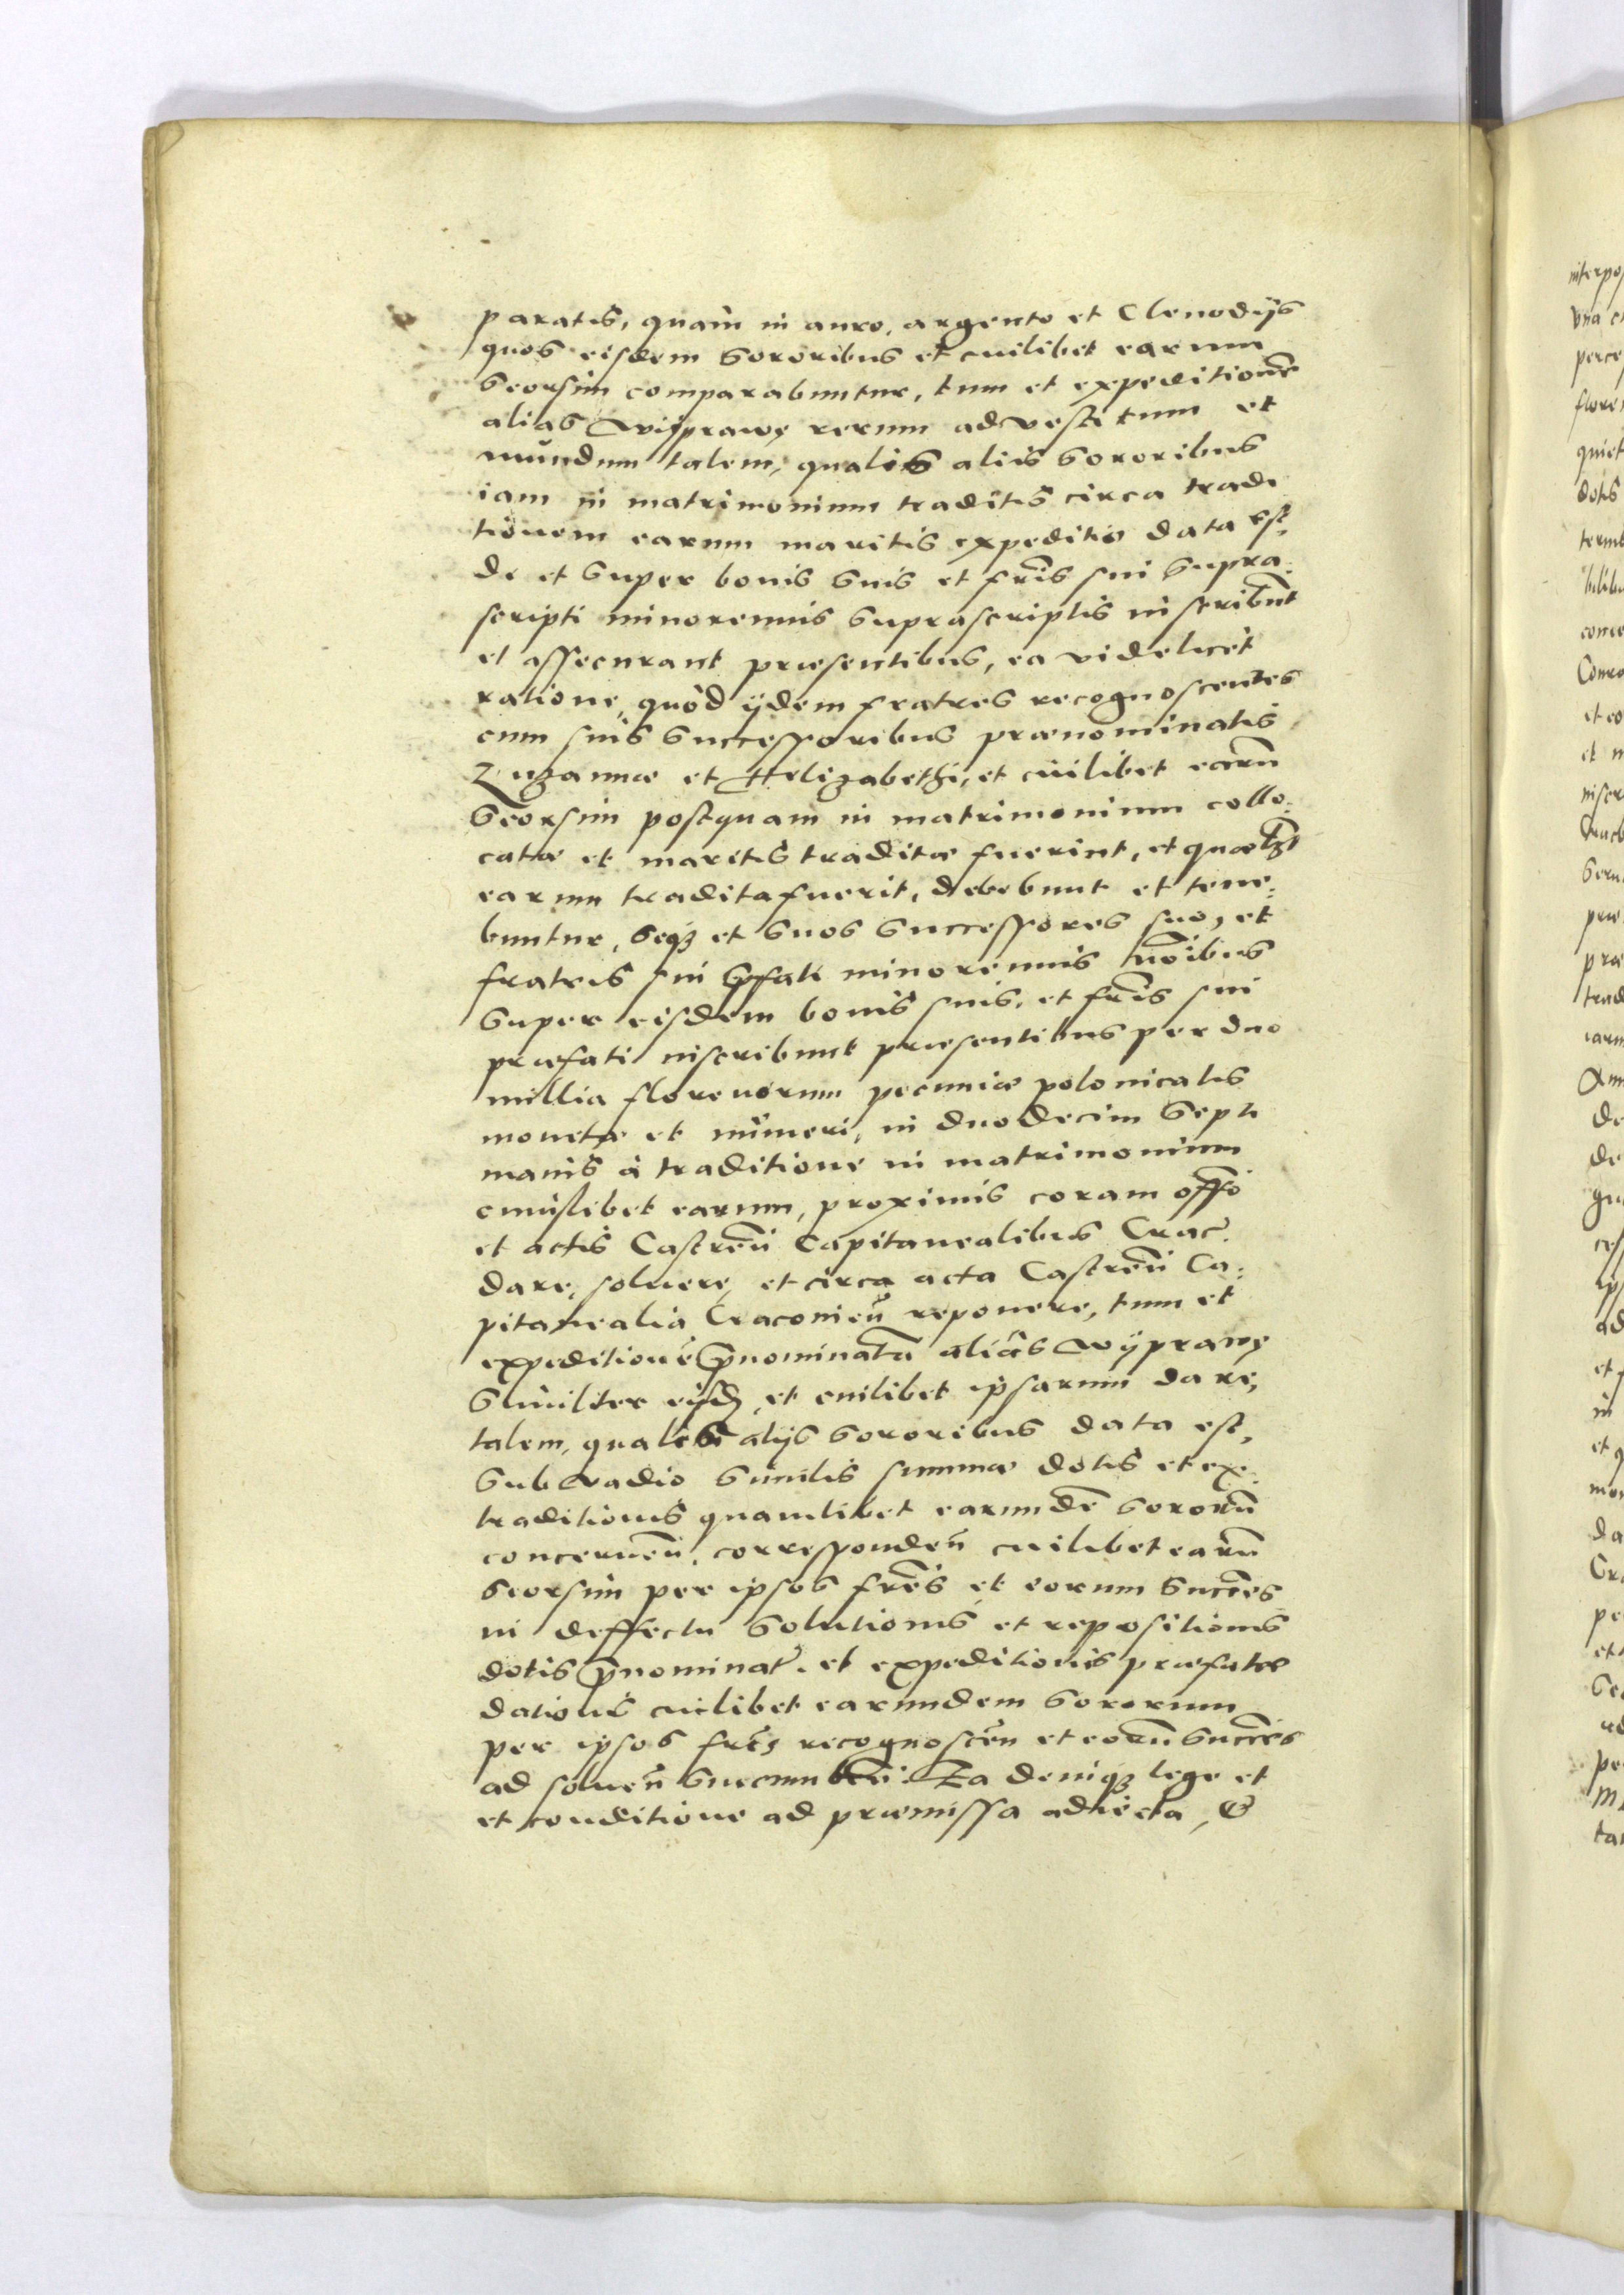 paratis, quàm in auro, argento et Clenodijs
quos eisdem sororibus et cuilibet earum
seorsim comparabuntur, tum et expeditionē
alias wyprawę rerum ad vestitum et
mundum talem, qualis aliis sororibus
iam in matrimonium traditis circa tradi
tionem earum maritis expeditio data est,
de et super bonis suis et fr̄is sui supra:
scripti minorennis suprascriptis inscribūt
et assecurant præsentibus, ea videlicet
ratione, quòd ijdem fratres recognoscentes
cum suis successoribus prænominatis
Zuzannæ et Helizabethæ, et cuilibet earū
seorsim postquam in matrimonium collo:
catæ et maritis traditæ fuerint, et quælꝫt
earum tradita fuerit, debebunt et tene:
buntur, seqꝫ et suos successores suo, et
fratris sui p̄fati minorennis nōibus
super eisdem bonis suis, et fr̄is sui
præfati inscribunt præsentibus per duo
millia florenorum pecuniæ polonicalis
monetæ et numeri, in duodecim septi
manis à traditione in matrimonium
cuiuslibet earum, proximis coram offō
et actis Castreñ Capitanealibus Crac̃.
dare, soluere, et circa acta Castreñ Ca:
pitanealia Cracovieñ reponere, tum et
expeditionē p̄nominatā aliâs wyprawę
similiter eisdꝫ, et cuilibet ipsarum dare,
talem, qualis alijs sororibus data est,
sub vadio similis summæ dotis et ex:
traditionis quamlibet earundē sororū
concerneñ, correspondeñ cuilibet earū
seorsim per ipsos fr̄es et eorum succēs
in deffectu solutionis et repositionis
dotis p̄nominat̃. et expeditionis præfatæ
dationis cuilibet earundem sororum
per ipsos fr̄es recognosceñ et eorū succēs
ad solueñ succumbeñ. Ea deniqꝫ lege et
et conditione ad præmissa adiecta, &